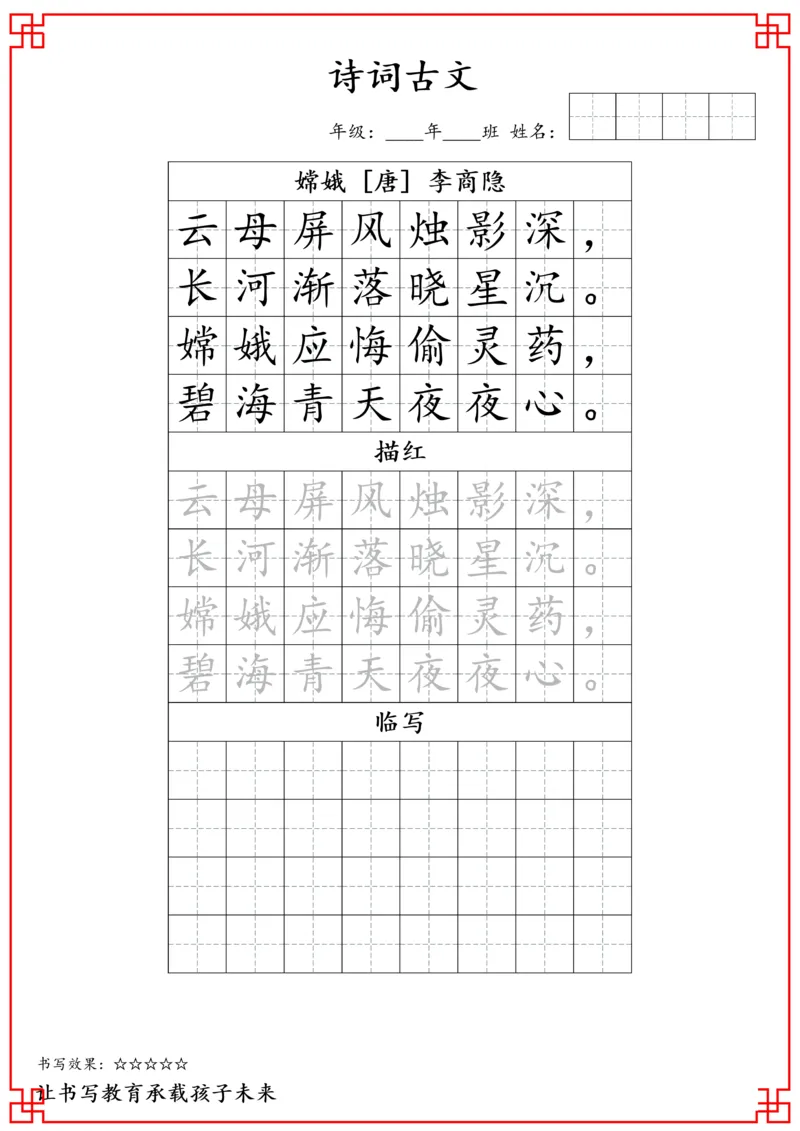 诗词古文
年级：____年____班 姓名：
嫦娥［唐］李商隐
云母屏风烛影深，
长河渐落晓星沉。
嫦娥应悔偷灵药，
碧海青天夜夜心。
描红
云母屏风烛影深，
长河渐落晓星沉。
嫦娥应悔偷灵药，
碧海青天夜夜心。
临写
书写效果：☆☆☆☆☆
让书写教育承载孩子未来